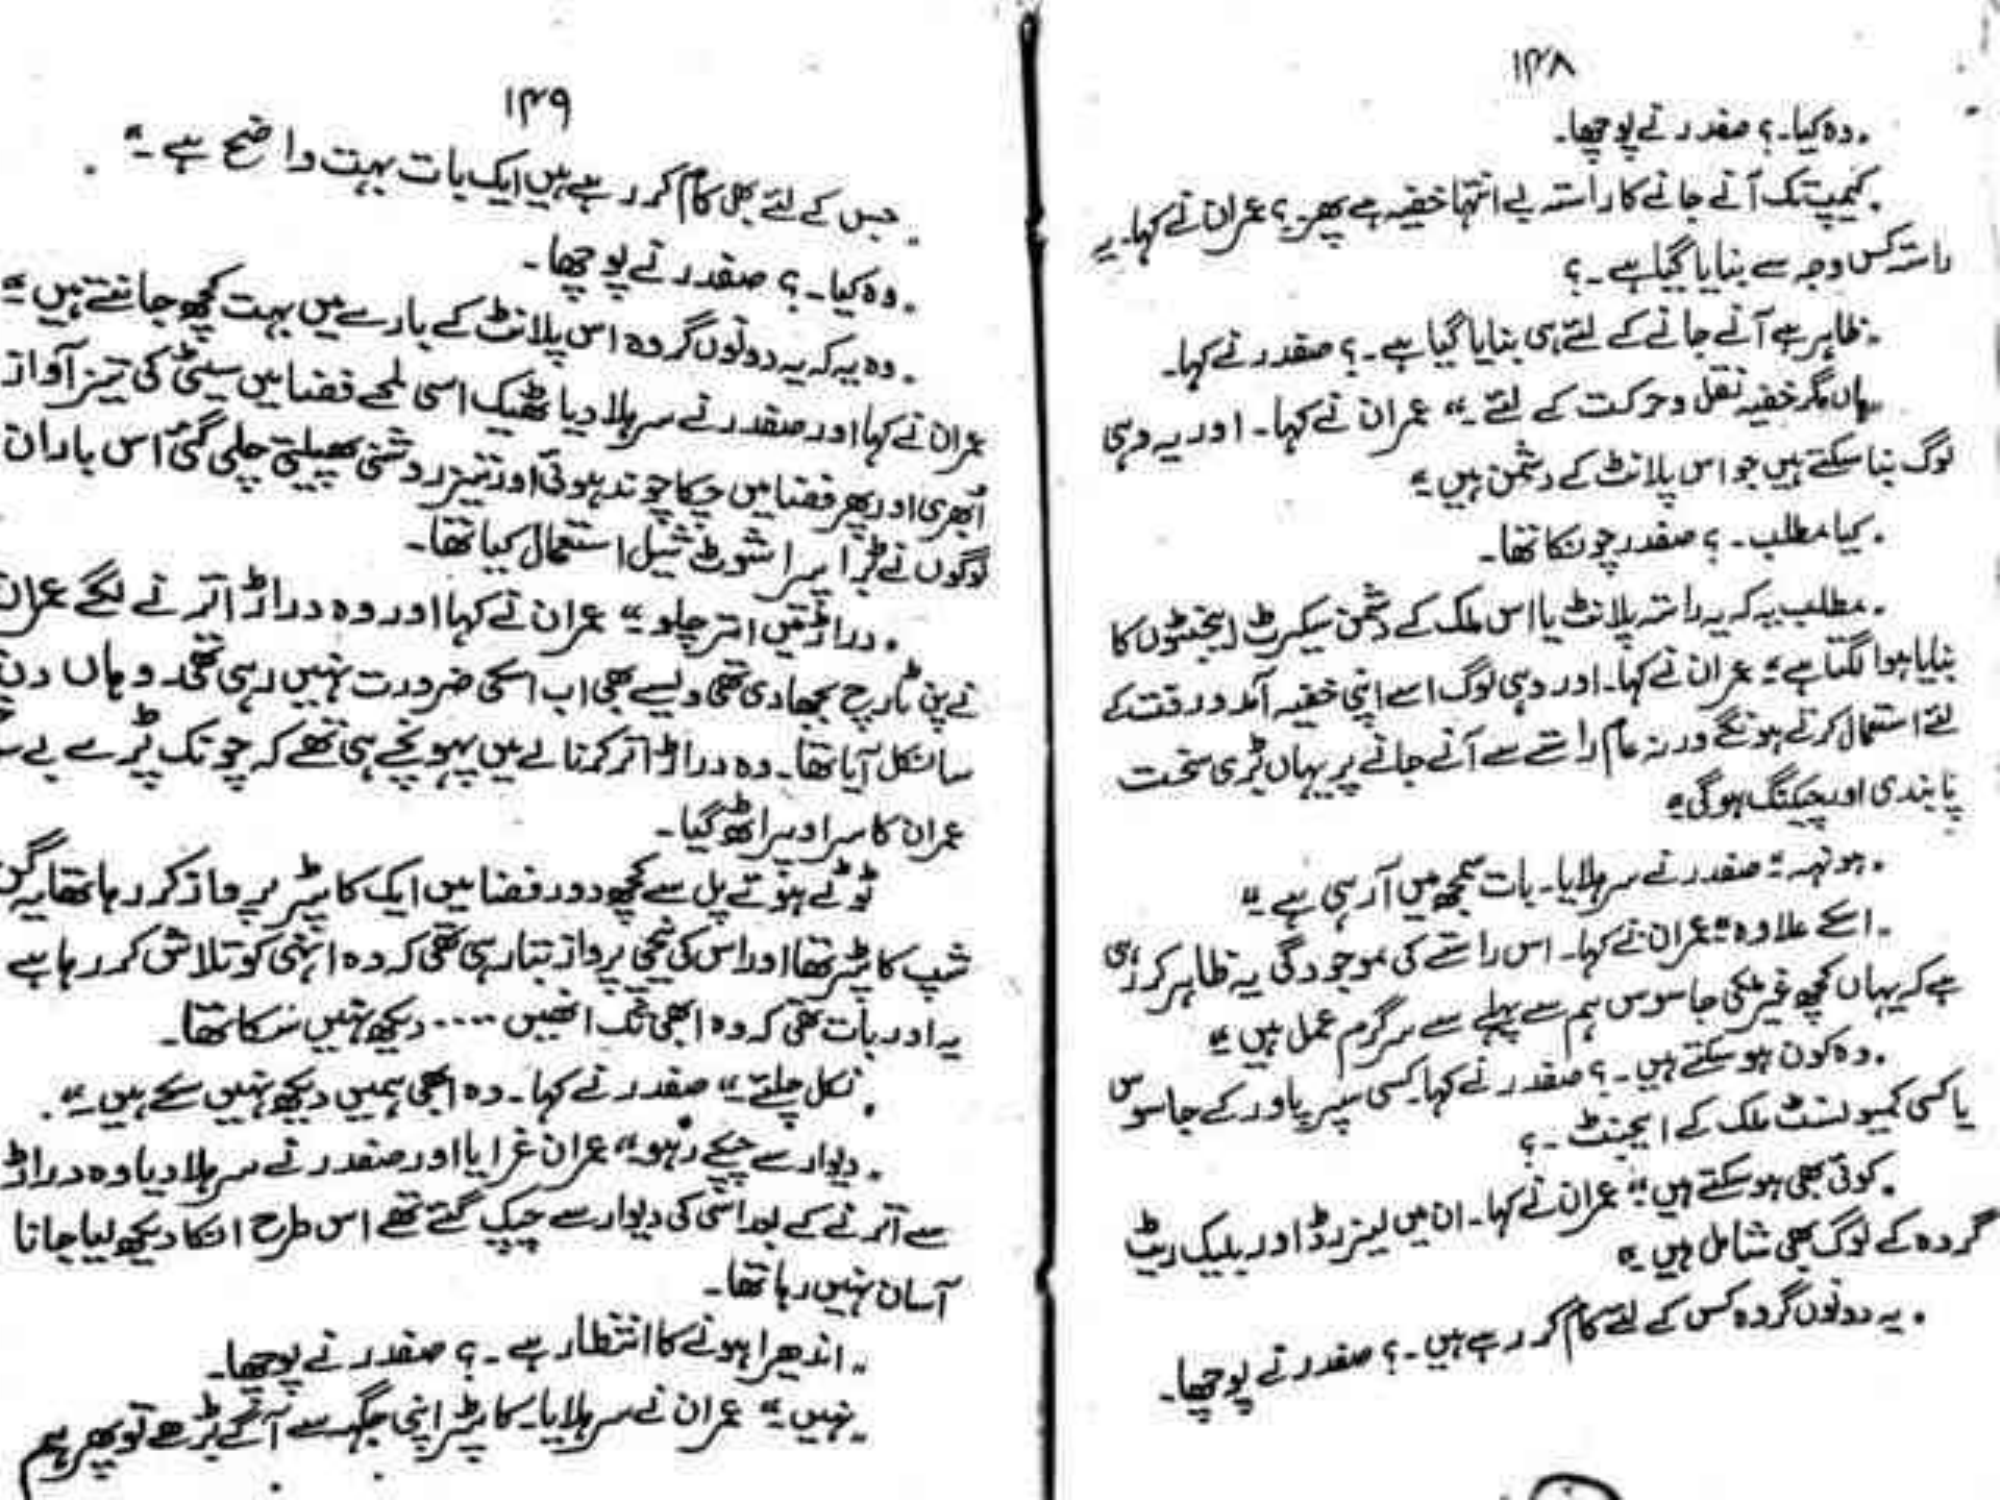 ۱۴۸
„وہ کیا۔؟ صفدر نے پوچھا۔
„کیمپ تک آنے جانے کا راستہ بے انتہا خفیہ ہے پھر۔؟ عمران نے کہا۔ یہ
راستہ کس وجہ سے بنایا گیا ہے۔؟
„ظاہر ہے آنے جانے کے لئے ہی بنایا گیا ہے۔؟ صفدر نے کہا۔
„ہاں مگر خفیہ نقل و حرکت کے لئے۔“ عمران نے کہا۔ اور یہ وہی
لوگ بنا سکتے ہیں جو اس پلانٹ کے دشمن ہیں۔“
„کیا مطلب۔؟ صفدر چونکا تھا۔
„مطلب یہ کہ یہ راستہ پلانٹ یا اس ملک کے دشمن سیکرٹ ایجنٹوں کا
بنایا ہوا لگتا ہے۔“ عمران نے کہا۔ اور وہی لوگ اسے اپنی خفیہ آمد و رفت کے
لئے استعمال کرتے ہونگے ورنہ عام راستے سے آنے جانے پر یہاں بڑی سخت
پابندی اور چیکنگ ہوگی۔“
„ہونہہ۔“ صفدر نے سر ہلایا۔ بات سمجھ میں آ رہی ہے۔“
„اسکے علاوہ۔“ عمران نے کہا۔ اس راستے کی موجودگی یہ ظاہر کر رہی
ہے کہ یہاں کچھ غیر ملکی جاسوس ہم سے پہلے سے سرگرم عمل ہیں۔“
„وہ کون ہو سکتے ہیں۔؟ صفدر نے کہا۔ کسی سپر پاور کے جاسوس
یا کسی کمیونسٹ ملک کے ایجنٹ۔؟
„کوئی بھی ہو سکتے ہیں۔“ عمران نے کہا۔ ان میں لیزرڈ اور بلیک ریٹ
گروہ کے لوگ بھی شامل ہیں۔“
„یہ دونوں گروہ کس کے لئے کام کر رہے ہیں۔؟ صفدر نے پوچھا۔
۱۴۹
„جس کے لئے بھی کام کر رہے ہیں ایک بات بہت واضح ہے۔“
„وہ کیا۔؟ صفدر نے پوچھا۔
„وہ یہ کہ یہ دونوں گروہ اس پلانٹ کے بارے میں بہت کچھ جانتے ہیں۔“
عمران نے کہا اور صفدر نے سر ہلا دیا ٹھیک اسی لمحے فضا میں سیٹی کی تیز آواز
ابھری اور پھر فضا میں چکاچوند ہوئی اور تیز روشنی پھیلتی چلی گئی اس بار ان
لوگوں نے پیرا شوٹ شیل استعمال کیا تھا۔
„دراڑ میں اتر چلو۔“ عمران نے کہا اور وہ دراڑ اترنے لگے عمران
نے پن ٹارچ بجھا دی تھی ویسے بھی اب اسکی ضرورت نہیں رہی تھی۔ وہاں دن
سا نکل آیا تھا۔ وہ دراڑ اتر کر نالے میں پہونچے ہی تھے کہ چونک پڑے
عمران کا سر اوپر اٹھ گیا۔
ٹوٹے ہوئے پل سے کچھ دور فضا میں ایک کاپٹر پرواز کر رہا تھا یہ گن
شپ کاپٹر تھا اور اس کی نیچی پرواز بتا رہی تھی کہ وہ انہی کو تلاش کر رہا ہے
یہ اور بات تھی کہ وہ ابھی تک انھیں .... دیکھ نہیں سکا تھا۔
„نکل چلئے۔“ صفدر نے کہا۔ وہ ابھی ہمیں دیکھ نہیں سکے ہیں۔“
„دیوار سے چپکے رہو۔“ عمران غرایا اور صفدر نے سر ہلا دیا وہ دراڑ
سے اترنے کے بعد اسی کی دیوار سے چپک گئے تھے اس طرح انکا دیکھ لیا جانا
آسان نہیں رہا تھا۔
„اندھیرا ہونے کا انتظار ہے۔؟ صفدر نے پوچھا۔
„نہیں۔“ عمران نے سر ہلایا۔ کاپٹر اپنی جگہ سے آگے بڑھے تو پھر ہم